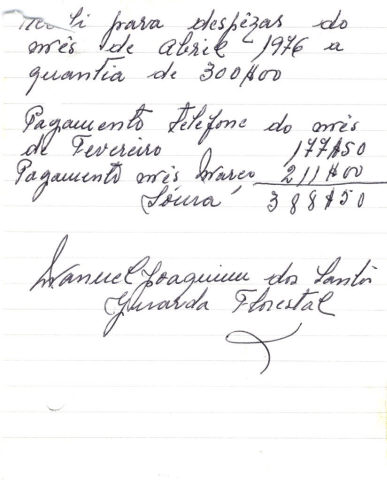 para despêzas do
mês de Abril 1976 a
quantia de 300$00
Pagamento Telefone do mês
de Fevereiro 177$50
Pagamento mês Março 211$00
Sôma 388$50
Manuel Joaquim dos Santos
Guarda Florestal